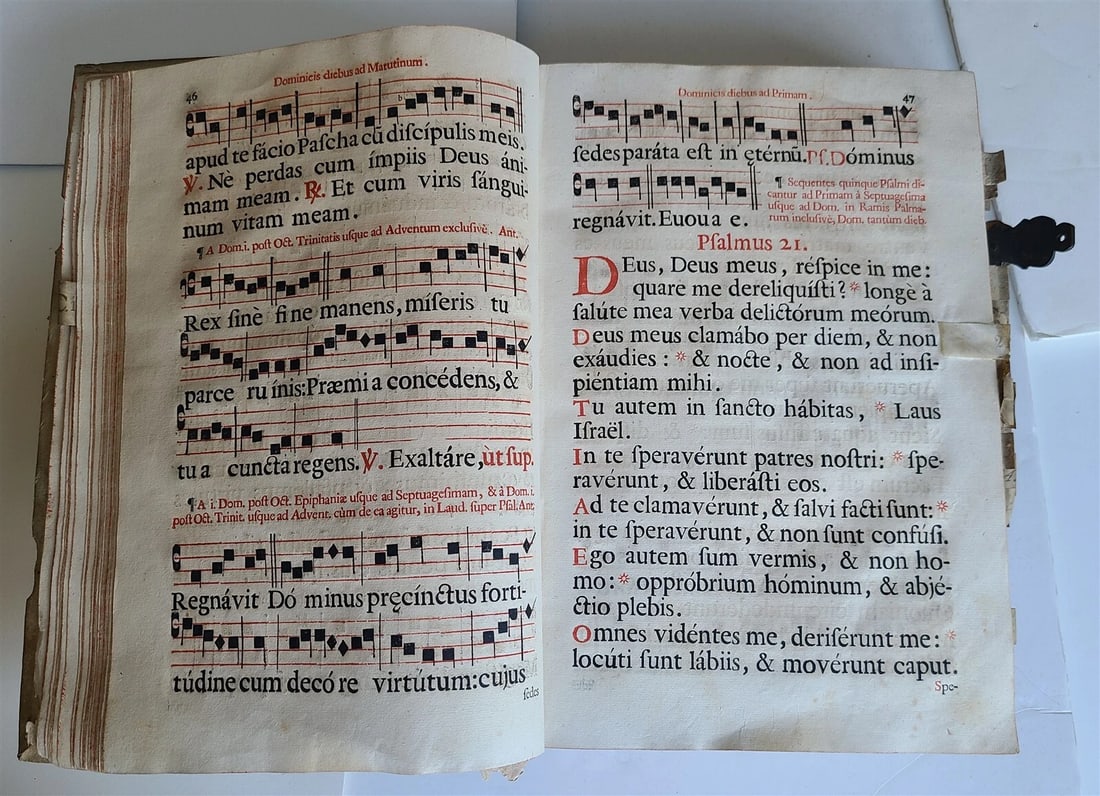 46
Dominicis diebus ad Matutinum.
apud te fácio Paſcha cū diſcípulis meis.
℣. Nè perdas cum ímpiis Deus áni-
mam meam. ℟. Et cum viris ſángui-
num vitam meam.
¶ A Dom. i. poſt Oct. Trinitatis uſque ad Adventum excluſivè. Ant.
Rex ſinè fine manens, míſeris tu
parce ruínis: Præmia concédens, &
tua cuncta regens. ℣. Exaltáre, ùt ſup.
¶ A i. Dom. poſt Oct. Epiphaniæ uſque ad Septuageſimam, & à Dom. i.
poſt Oct. Trinit. uſque ad Advent. cùm de ea agitur, in Laud. ſuper Pſal. Ant.
Regnávit Dóminus pręcínctus forti-
túdine cum decóre virtútum: cujus
ſedes
Dominicis diebus ad Primam.
47
ſedes paráta eſt in ętérnū. Pſ. Dóminus
regnávit. Euouae.
¶ Sequentes quinque Pſalmi di-
cantur ad Primam à Septuageſima
uſque ad Dom. in Ramis Palma-
rum incluſivè, Dom. tantùm dieb.
Pſalmus 21.
DEus, Deus meus, réſpice in me:
quare me dereliquíſti? * longè à
ſalúte mea verba delictórum meórum.
Deus meus clamábo per diem, & non
exáudies: * & nocte, & non ad inſi-
piéntiam mihi.
Tu autem in ſancto hábitas, * Laus
Iſraël.
In te ſperavérunt patres noſtri: * ſpe-
ravérunt, & liberáſti eos.
Ad te clamavérunt, & ſalvi facti ſunt: *
in te ſperavérunt, & non ſunt confúſi.
Ego autem ſum vermis, & non ho-
mo: * oppróbrium hóminum, & abjé-
ctio plebis.
Omnes vidéntes me, deriſérunt me: *
locúti ſunt lábiis, & movérunt caput.
Spe-